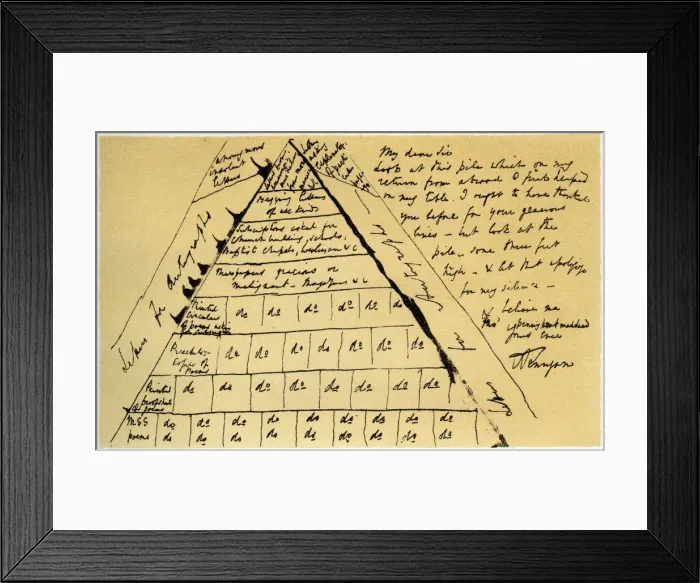 Anonymous
insolent
letters
Letters for Autographs
Begging letters
of all kinds
Subscriptions asked for
Church building, schools,
Baptist chapels, Wesleyan &c
Newspapers gracious or
malignant - Magazines &c
Printed
circulars
of poems
do do do do do do
Presentation
Copies of
Poems
do do do do do do do
Printed
proofsheets
of poems
do do do do do do do do
MSS
poems
do do do do do do do do do
do do do do do do do do do
Letters for Autographs
My dear Sir
Look at this pile which on my
return from abroad I find heaped
on my table. I ought to have thanked
you before for your generous
lines - but look at the
pile - some three feet
high - & let that apologize
for my silence -
& believe me
yours
ATennyson